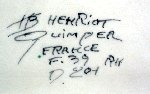 HB HENRIOT
Quimper
FRANCE
F.39 PH
D.201